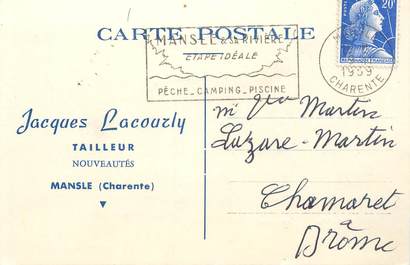 CARTE POSTALE
20F
MANSLE & SA RIVIÈRE
ETAPE IDÉALE
PÊCHE_CAMPING_PISCINE
1959
CHARENTE
Jacques Lacourly
TAILLEUR
NOUVEAUTÉS
MANSLE (Charente)
Martin
Lazare-Martin
Chamaret
à
Drôme